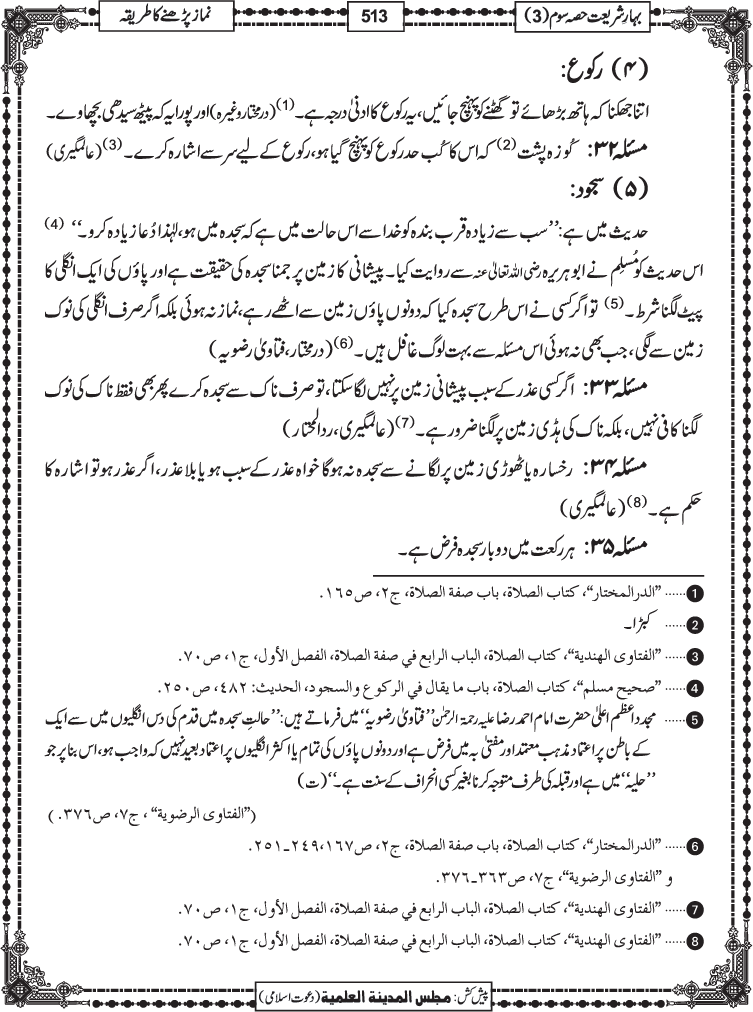 بہارِ شریعت حصہ سوم (3)
513
نماز پڑھنے کا طریقہ
(۴) رکوع:
اتنا جھکنا کہ ہاتھ بڑھائے تو گھٹنے کو پہنچ جائیں، یہ رکوع کا ادنیٰ درجہ ہے۔(1) (درمختار وغیرہ) اور پورا یہ کہ پیٹھ سیدھی بچھاوے۔
مسئلہ ۳۲: کُوزہ پشت(2) کہ اس کا کُب حد رکوع کو پہنچ گیا ہو، رکوع کے لیے سر سے اشارہ کرے۔(3) (عالمگیری)
(۵) سجود:
حدیث میں ہے: ’’سب سے زیادہ قرب بندہ کو خدا سے اس حالت میں ہے کہ سجدہ میں ہو، لہٰذا دُعا زیادہ کرو۔‘‘ (4)
اس حدیث کو مُسلِم نے ابوہریرہ رضی اللہ تعالیٰ عنہ سے روایت کیا۔ پیشانی کا زمین پر جمنا سجدہ کی حقیقت ہے اور پاؤں کی ایک انگلی کا
پیٹ لگنا شرط۔(5) تو اگر کسی نے اس طرح سجدہ کیا کہ دونوں پاؤں زمین سے اٹھے رہے، نماز نہ ہوئی بلکہ اگر صرف انگلی کی نوک
زمین سے لگی، جب بھی نہ ہوئی اس مسئلہ سے بہت لوگ غافل ہیں۔(6) (درمختار، فتاویٰ رضویہ)
مسئلہ ۳۳: اگر کسی عذر کے سبب پیشانی زمین پر نہیں لگا سکتا، تو صرف ناک سے سجدہ کرے پھر بھی فقط ناک کی نوک
لگنا کافی نہیں، بلکہ ناک کی ہڈی زمین پر لگنا ضرور ہے۔(7) (عالمگیری، ردالمحتار)
مسئلہ ۳۴: رخسارہ یا ٹھوڑی زمین پر لگانے سے سجدہ نہ ہوگا خواہ عذر کے سبب ہو یا بلا عذر، اگر عذر ہو تو اشارہ کا
حکم ہے۔(8) (عالمگیری)
مسئلہ ۳۵: ہر رکعت میں دو بار سجدہ فرض ہے۔
1 ...... ”الدرالمختار“، کتاب الصلاة، باب صفة الصلاة، ج۲، ص۱٦۵.
2 ...... کبڑا۔
3 ...... ”الفتاوی الھندیة“، کتاب الصلاة، الباب الرابع في صفة الصلاة، الفصل الأول، ج۱، ص۷۰.
4 ...... ”صحیح مسلم“، کتاب الصلاة، باب ما یقال في الرکوع والسجود، الحدیث: ٤۸۲، ص۲۵۰.
5 ...... مجدداعظم اعلیٰ حضرت امام احمد رضا علیہ رحمۃ الرحمٰن ’’فتاویٰ رضویہ‘‘ میں فرماتے ہیں: ’’حالتِ سجدہ میں قدم کی دس انگلیوں میں سے ایک
کے باطن پر اعتماد مذہب معتمد اور مفتیٰ بہ میں فرض ہے اور دونوں پاؤں کی تمام یا اکثر انگلیوں پر اعتماد بعید نہیں کہ واجب ہو، اس بنا پر جو
’’حلیہ‘‘ میں ہے اور قبلہ کی طرف متوجہ کرنا بغیر کسی انحراف کے سنت ہے۔‘‘ (ت)
(”الفتاوی الرضویة“، ج۷، ص۳۷٦.)
6 ...... ”الدرالمختار“، کتاب الصلاة، باب صفة الصلاة، ج۲، ص۱٦۷،۲٤۹ـ۲۵۱.
و ”الفتاوی الرضویة“، ج۷، ص۳٦۳ـ۳۷٦.
7 ...... ”الفتاوی الھندیة“، کتاب الصلاة، الباب الرابع في صفة الصلاة، الفصل الأول، ج۱، ص۷۰.
8 ...... ”الفتاوی الھندیة“، کتاب الصلاة، الباب الرابع في صفة الصلاة، الفصل الأول، ج۱، ص۷۰.
پیش کش: مجلس المدینة العلمیة (دعوت اسلامی)